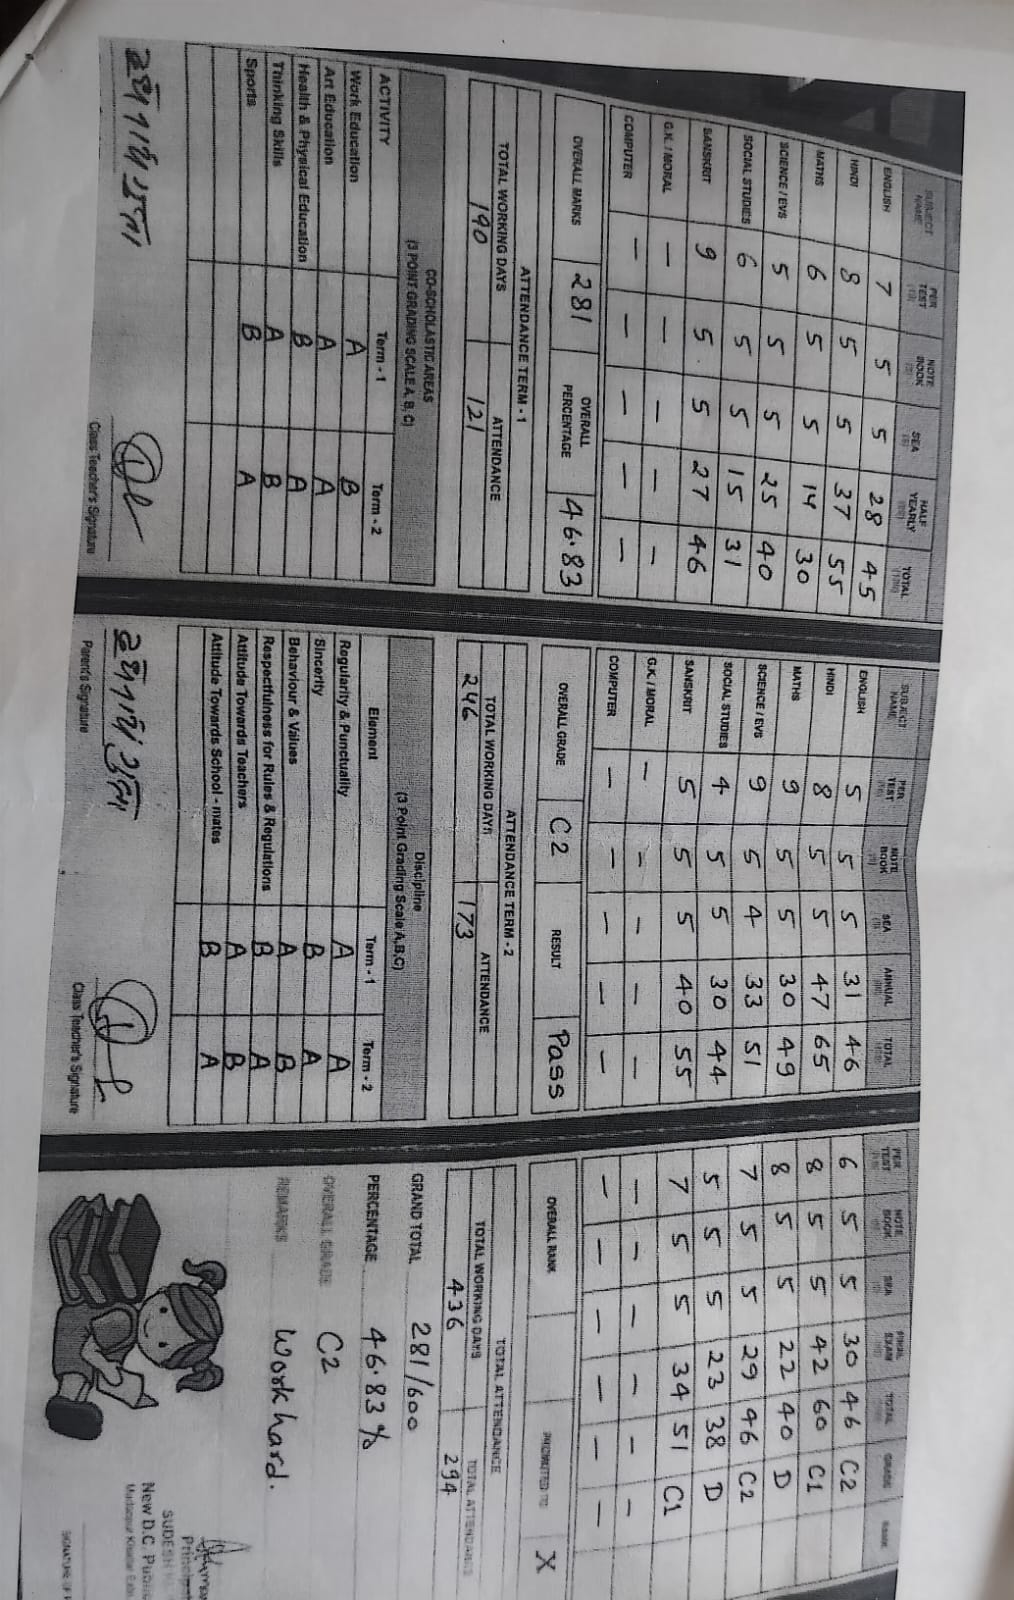 SUBJECT NAME PER TEST NOTE BOOK SEA HALF YEARLY TOTAL
ENGLISH 7 5 5 28 45
HINDI 8 5 5 37 55
MATHS 6 5 5 14 30
SCIENCE / EVS 5 5 5 25 40
SOCIAL STUDIES 6 5 5 15 31
SANSKRIT 9 5 5 27 46
G.K. / MORAL — — — — —
COMPUTER — — — — —
OVERALL MARKS 281 OVERALL PERCENTAGE 46.83
ATTENDANCE TERM - 1
TOTAL WORKING DAYS ATTENDANCE
190 121
CO-SCHOLASTIC AREAS
(3 POINT GRADING SCALE A, B, C)
ACTIVITY Term - 1 Term - 2
Work Education A B
Art Education A A
Health & Physical Education B A
Thinking Skills A B
Sports B A
Class Teacher's Signature
SUBJECT NAME PER TEST NOTE BOOK SEA ANNUAL TOTAL
ENGLISH 5 5 5 31 46
HINDI 8 5 5 47 65
MATHS 9 5 5 30 49
SCIENCE / EVS 9 5 4 33 51
SOCIAL STUDIES 4 5 5 30 44
SANSKRIT 5 5 5 40 55
G.K. / MORAL — — — — —
COMPUTER — — — — —
OVERALL GRADE C2 RESULT Pass
ATTENDANCE TERM - 2
TOTAL WORKING DAYS ATTENDANCE
246 173
Discipline
(3 Point Grading Scale A,B,C)
Element Term - 1 Term - 2
Regularity & Punctuality A A
Sincerity B A
Behaviour & Values A B
Respectfulness for Rules & Regulations B A
Attitude Towards Teachers A B
Attitude Towards School - mates B A
Parent's Signature Class Teacher's Signature
PER TEST NOTE BOOK SEA FINAL EXAM TOTAL GRADE RANK
6 5 5 30 46 C2
8 5 5 42 60 C1
8 5 5 22 40 D
7 5 5 29 46 C2
5 5 5 23 38 D
7 5 5 34 51 C1
— — — — — —
— — — — — —
OVERALL RANK PROMOTED TO X
TOTAL ATTENDANCE
TOTAL WORKING DAYS TOTAL ATTENDANCE
436 294
GRAND TOTAL 281/600
PERCENTAGE 46.83 %
OVERALL GRADE C2
REMARKS Work hard.
SUDESH
New D.C.